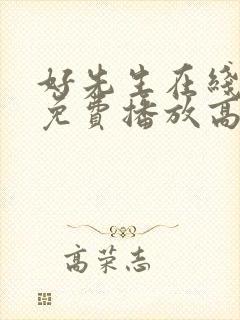 好先生在线
免费播放高
高荣志